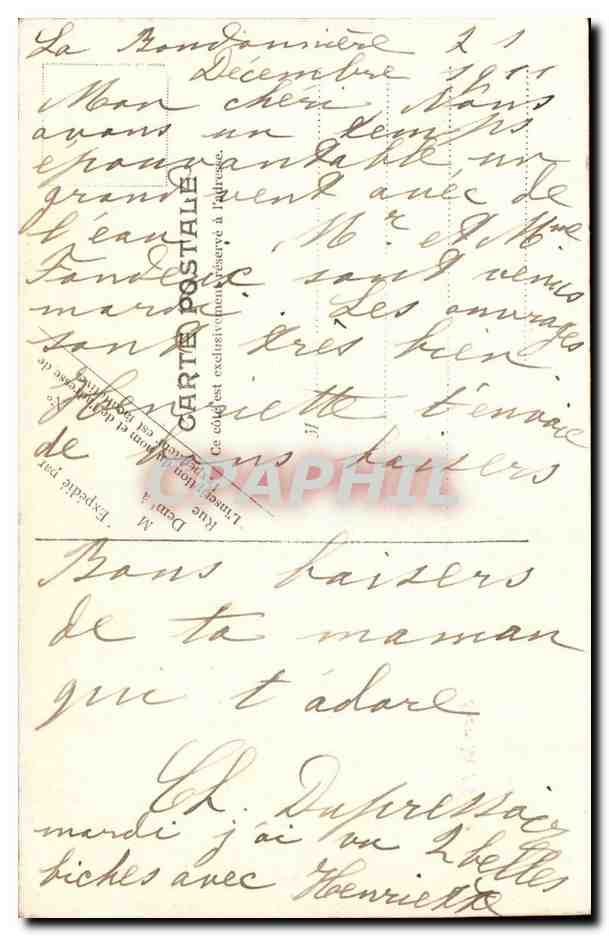 La Bondonnière 21
Décembre 1911
Mon chéri Nous
avons un temps
épouvantable un
grand vent avec de
l'eau. Mr et Mme
Fondeur sont venus
mardi. Les ouvrages
sont très bien
Henriette t'envoie
de bons baisers
Bons baisers
de ta maman
qui t'adore
Ch. Dupressoir
mardi j'ai vu 2 belles
biches avec Henriette
CARTE POSTALE
Ce côté est exclusivement réservé à l'adresse.
M
Expédié par
M
Demt à
Rue
No
L'inscription du nom et de l'adresse de
l'expéditeur est facultative
CPAPHIL